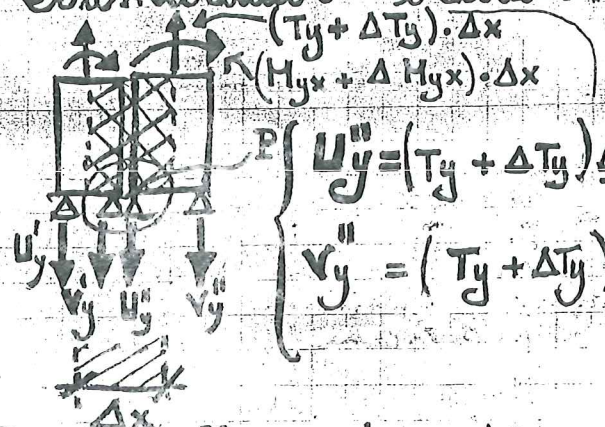 (Ty + ΔTy)·Δx
(Myx + Δ Myx)·Δx
P
U"y = (Ty + ΔTy)
V"y = (Ty + ΔTy)
U'y
V'y U"y V"y
Δx